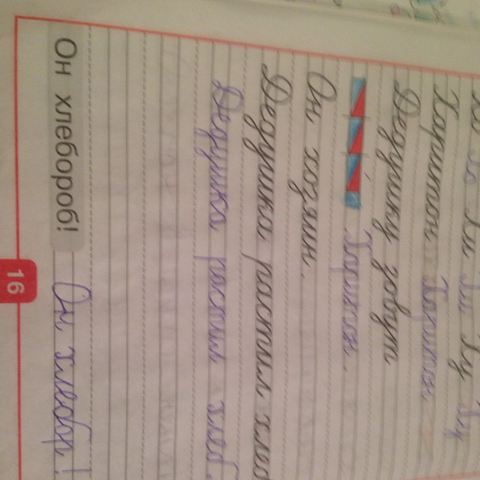 Харитон. Харитон
Дедушку зовут
Харитон.
Он хозяин.
Дедушка растил хлеб
Дедушка растил хлеб.
Он хлебороб! Он хлебор!
16